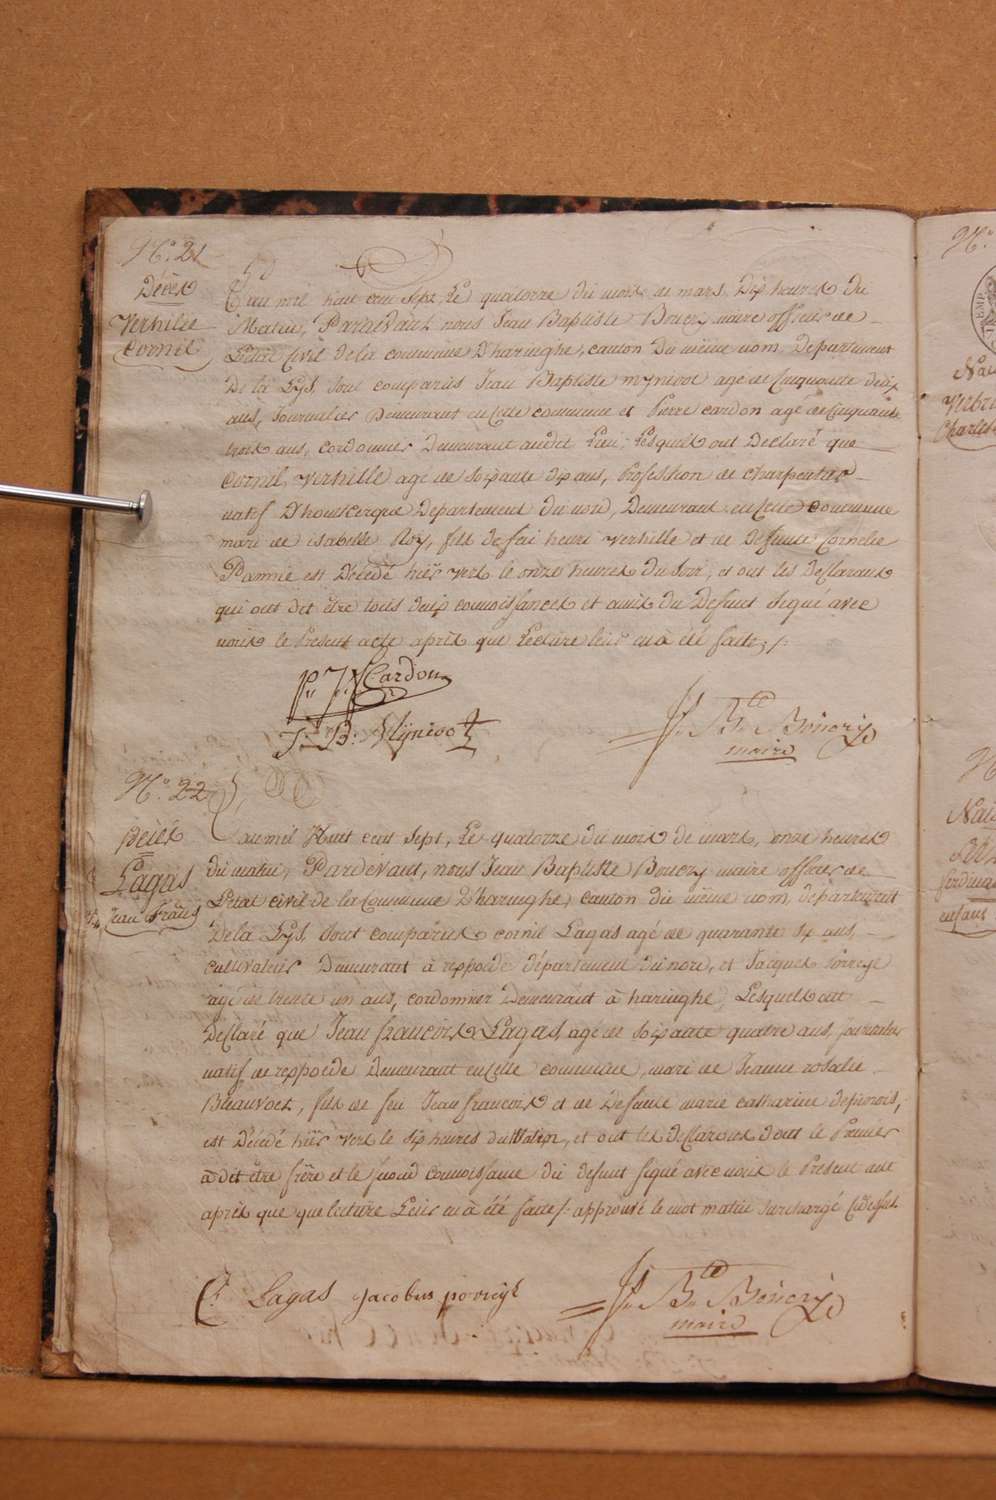 N.° 21
Décès
Verhille
Cornil
L'an mil huit cent Sept, Le quatorze du mois de mars, Dix heures du
Matin, Pardevant nous Jean Baptiste Boucry maire officier de
L'état Civil de la commune D'haringhe, canton Du même nom, Departement
De la Lys, sont comparus Jean Baptiste mynivot agé de Cinquante deux
ans, Journalier Demeurant en cette commune et Pierre cardon agé de Cinquante
trois ans, cordonnier Demeurant audit Lieu, Lesquels ont Declaré que
Cornil Verhille agé de soixante dix ans, Profession de Charpentier
natif D'hontscerque Departement du nord, Demeurant en cette Commune
mari de isabelle Roy, fils de feu henri Verhille et de Defunte Cornelie
Pamme est Décédé hier vers le onze heures du Soir, et ont les Desclarans
qui ont dit être tous deux connoissances et amis du Defunt signé avec
nous le Present acte après que Lecture leur en à été faite ./.
P. J. Cardon
J. B. Mynivot
J. Bte Boucry
maire
N.° 22
Décès
Lagas
Jean Franç
L'an mil Huit cent Sept, Le quatorze du mois de mars, onze heures
du matin, Pardevant, nous Jean Baptiste Boucry maire officier de
L'état civil de la Commune D'haringhe, canton du même nom, departement
De la Lys, sont comparus cornil Lagas agé de quarante six ans,
cultivateur Demeurant à reppoede département du nord, et Jacques Porreye
agé de trente un ans, cordonnier Demeurant à haringhe, Lesquels ont
Desclaré que Jean francois Lagas, agé de soixante quatre ans, journalier
natif de reppoede Demeurant en cette commune, mari de Jeanne rosalie
Beauvoet, fils de feu Jean francois et de Defunte marie catharine depinois,
est Décédé hier vers le six heures du Matin, et ont les desclarans dont le Premier
à dit être frère et le second connoissance du defunt signé avec nous le Present acte
après que que lecture Leur en à été faite ./. approuvé le mot matin surchargé cidessus.
C. Lagas Jacobus porreye
J. Bte Boucry
maire
N.°
EMP
Verbru
Charles
N
Nais
ferdinan
enfans